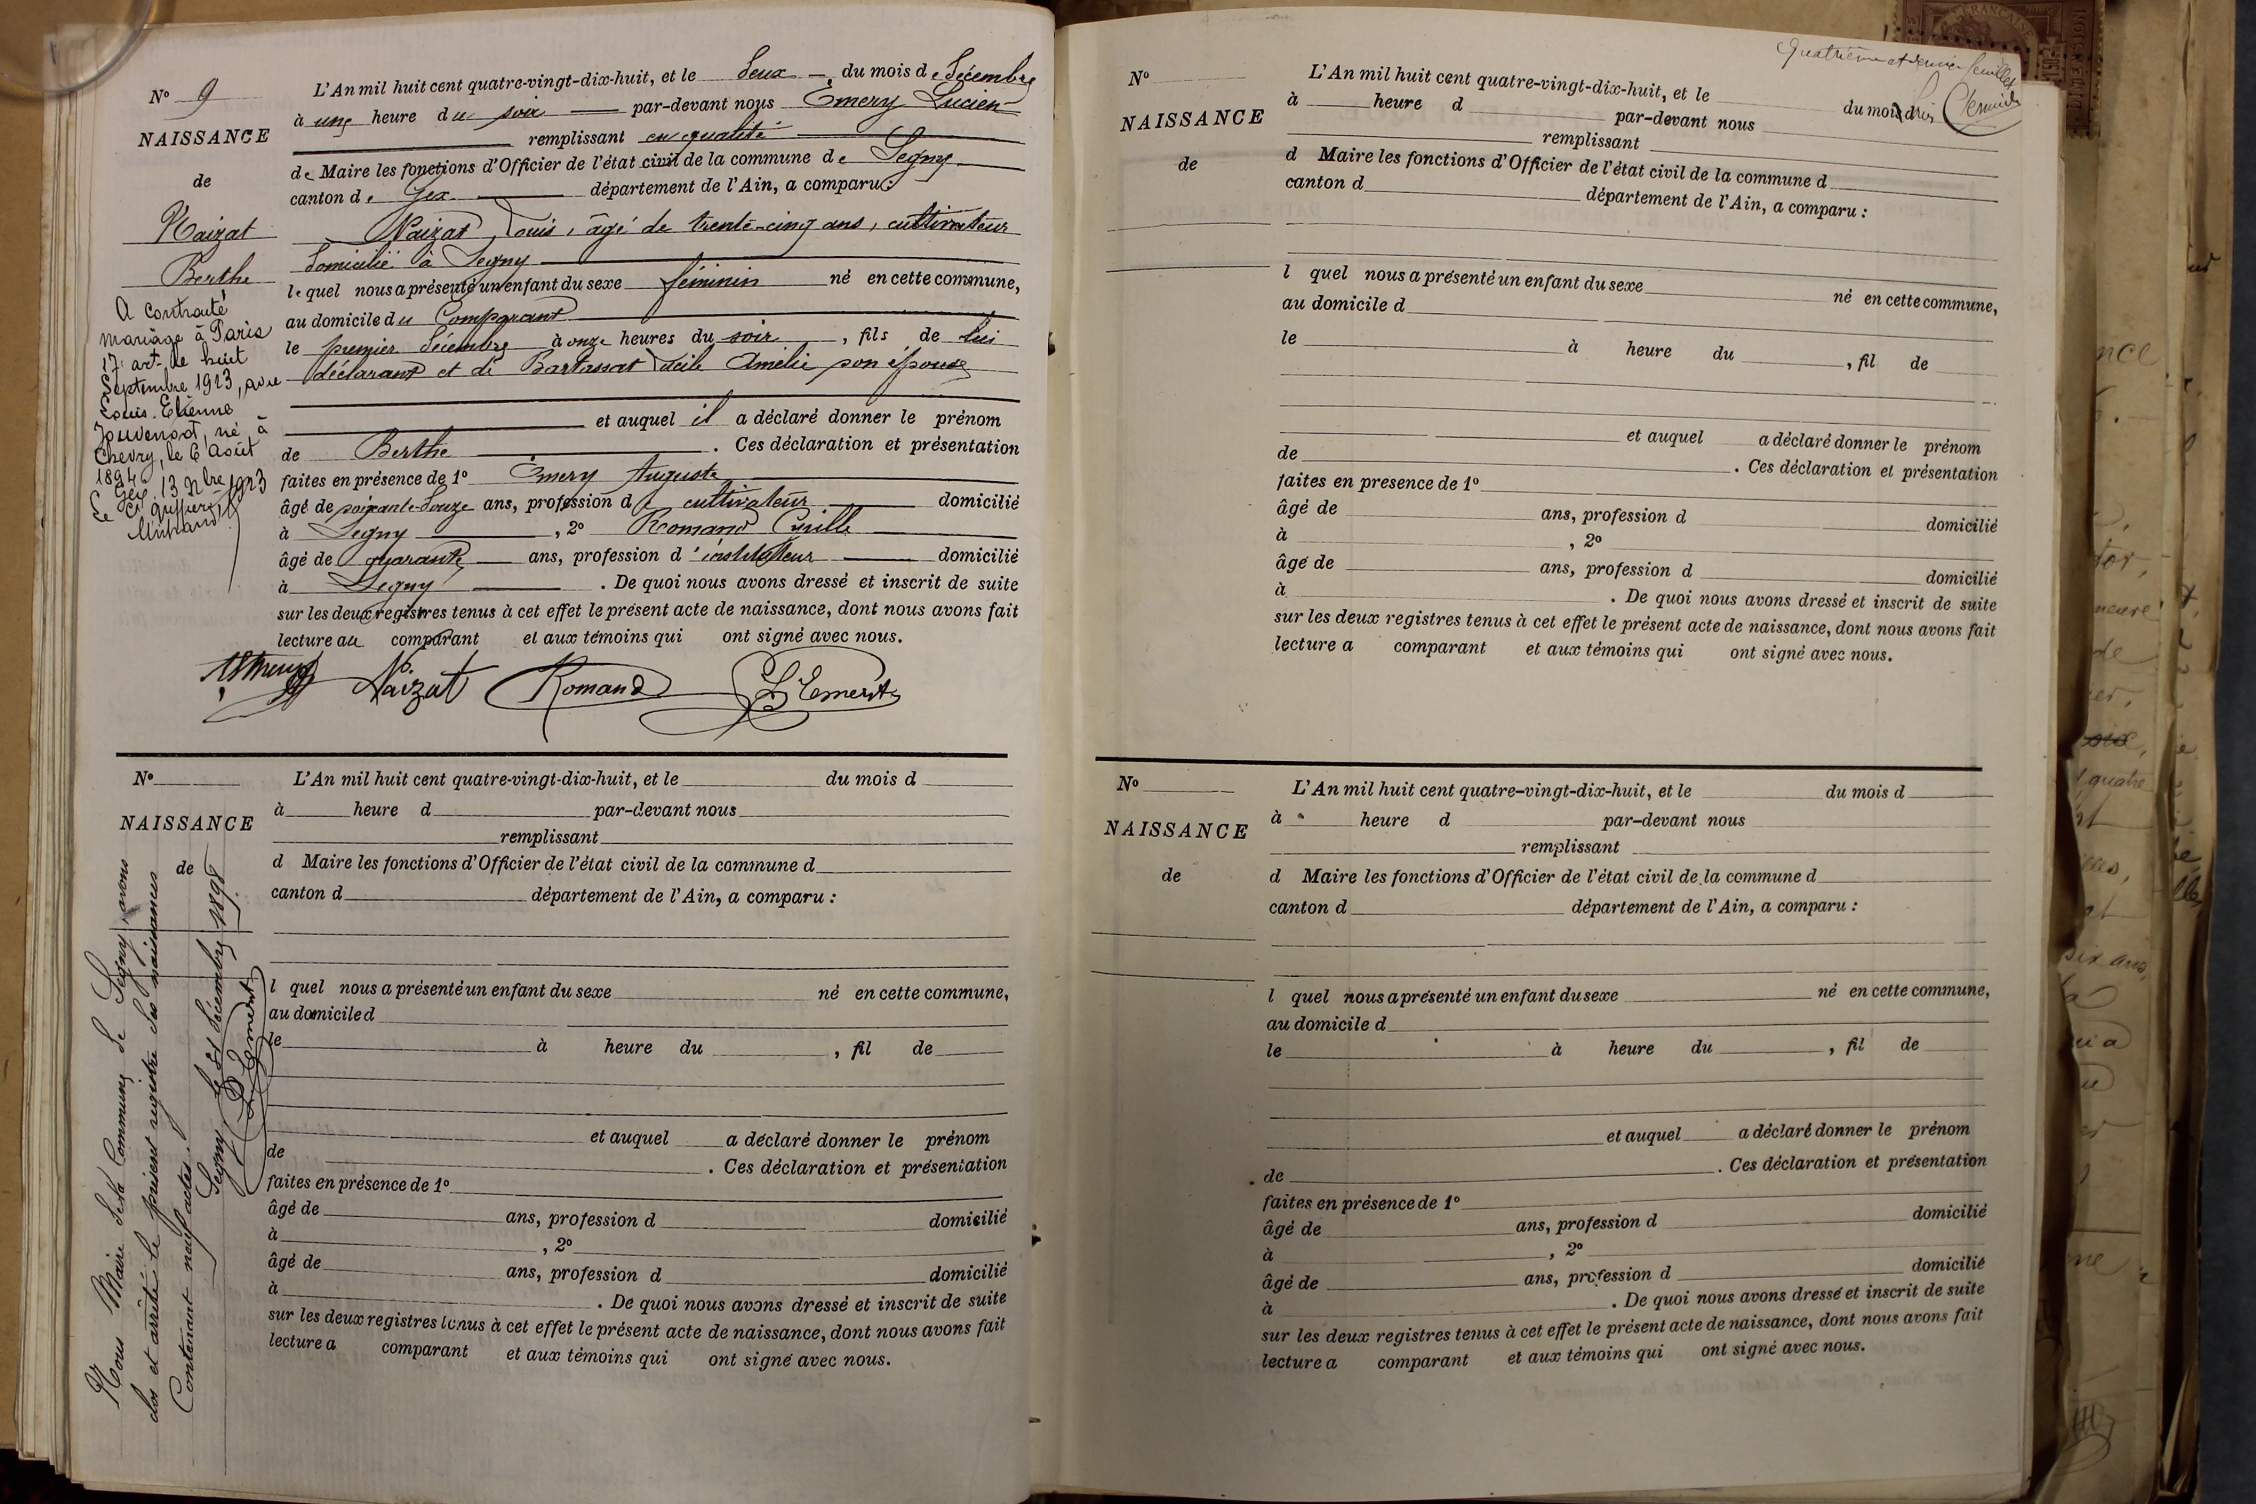 N° 9
NAISSANCE
de
Naizat
Berthe
A contracté
mariage à Paris
17e arrt le huit
Septembre 1923, avec
Louis Etienne
Jouvenoz, né à
Chevry, le 6 Août
1894
Gex, 13 9bre 1923
Le Greffier
L'An mil huit cent quatre-vingt-dix-huit, et le deux du mois de Décembre
à une heure du soir par-devant nous Emery Lucien
remplissant en qualité
de Maire les fonctions d'Officier de l'état civil de la commune de Segny
canton de Gex département de l'Ain, a comparu :
Naizat Louis, âgé de trente-cinq ans, cultivateur
domicilié à Segny
lequel nous a présenté un enfant du sexe féminin né en cette commune,
au domicile du Comparant
le premier Décembre à onze heures du soir, fils de lui
déclarant et de Bartassat Lucile Amélie son épouse
et auquel il a déclaré donner le prénom
de Berthe. Ces déclaration et présentation
faites en présence de 1° Emery Auguste
âgé de soixante-douze ans, profession de cultivateur domicilié
à Segny, 2° Romand Cyrille
âgé de quarante ans, profession d'instituteur domicilié
à Segny. De quoi nous avons dressé et inscrit de suite
sur les deux registres tenus à cet effet le présent acte de naissance, dont nous avons fait
lecture au comparant et aux témoins qui ont signé avec nous.
Naizat Romand L. Emery
N°
NAISSANCE
de
L'An mil huit cent quatre-vingt-dix-huit, et le du mois d
à heure d par-devant nous
remplissant
d Maire les fonctions d'Officier de l'état civil de la commune d
canton d département de l'Ain, a comparu :
l quel nous a présenté un enfant du sexe né en cette commune,
au domicile d
le à heure du , fil de
et auquel a déclaré donner le prénom
de . Ces déclaration et présentation
faites en présence de 1°
âgé de ans, profession d domicilié
à , 2°
âgé de ans, profession d domicilié
à . De quoi nous avons dressé et inscrit de suite
sur les deux registres tenus à cet effet le présent acte de naissance, dont nous avons fait
lecture a comparant et aux témoins qui ont signé avec nous.
Nous Maire de la Commune de Segny, avons
clos et arrêté le présent registre des naissances
Contenant neuf actes.
Segny le 31 Décembre 1898
L. Emery
Quatrième et dernier feuillet
N°
NAISSANCE
de
L'An mil huit cent quatre-vingt-dix-huit, et le du mois d
à heure d par-devant nous
remplissant
d Maire les fonctions d'Officier de l'état civil de la commune d
canton d département de l'Ain, a comparu :
l quel nous a présenté un enfant du sexe né en cette commune,
au domicile d
le à heure du , fil de
et auquel a déclaré donner le prénom
de . Ces déclaration et présentation
faites en presence de 1°
âgé de ans, profession d domicilié
à , 2°
âgé de ans, profession d domicilié
à . De quoi nous avons dressé et inscrit de suite
sur les deux registres tenus à cet effet le présent acte de naissance, dont nous avons fait
lecture a comparant et aux témoins qui ont signé avec nous.
N°
NAISSANCE
de
L'An mil huit cent quatre-vingt-dix-huit, et le du mois d
à heure d par-devant nous
remplissant
d Maire les fonctions d'Officier de l'état civil de la commune d
canton d département de l'Ain, a comparu :
l quel nous a présenté un enfant du sexe né en cette commune,
au domicile d
le à heure du , fil de
et auquel a déclaré donner le prénom
de . Ces déclaration et présentation
faites en présence de 1°
âgé de ans, profession d domicilié
à , 2°
âgé de ans, profession d domicilié
à . De quoi nous avons dressé et inscrit de suite
sur les deux registres tenus à cet effet le présent acte de naissance, dont nous avons fait
lecture a comparant et aux témoins qui ont signé avec nous.